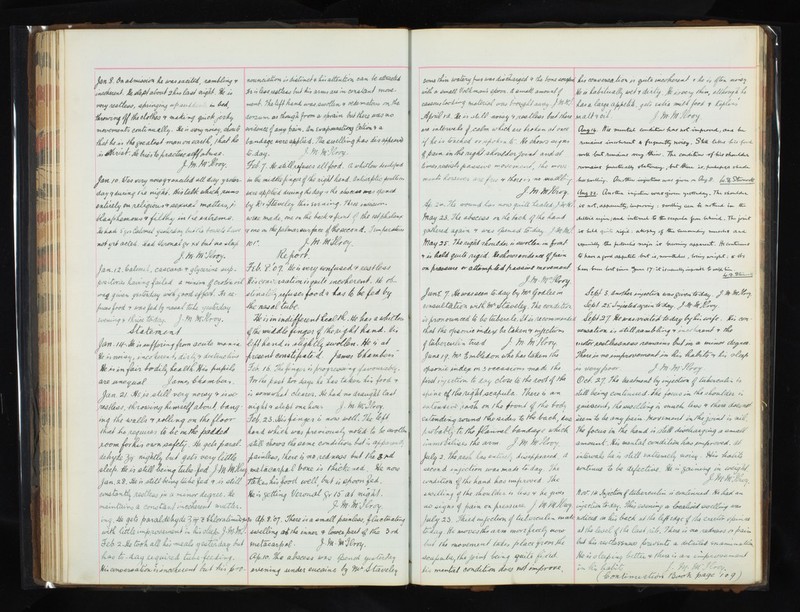 Jan 8. On admission he was excited, rambling &
incoherent. He slept about 2 hrs last night. He is
very restless, springing up in bed,
throwing off the clothes & making quick jerky
movements continually. He is very noisy, shouts
that he is the greatest man on earth, that he
is Christ. He tries to
J. M. McIlroy.
Jan. 10. Was very noisy and violent all day yester-
day & during the night. His talk, which runs
entirely on religious & sexual matters, is
blasphemous & filthy in the extreme.
He had 5 grs Calomel yesterday but the bowels have
not yet acted. Had Veronal gr xx but no sleep
J. M. McIlroy.
Jan. 12. Calomel, cascara & glycerine sup-
positories having failed a mixture of
was given yesterday with good effect. He re-
fuses food & was fed by nasal tube yesterday
evening & this to-day. J. M. McIlroy.
Statement
Jan. 14. He is suffering from acute mania.
He is noisy, incoherent, dirty & destructive
He is in fair bodily health. His pupils
are unequal James Chambers.
Jan. 21. He is still very noisy &
restless, throwing himself about, bang-
ing the walls & rolling on the floor
that he requires to be in the padded
room for his own safety. He gets paral-
dehyde 3ij nightly but gets very little
sleep. He is still being tube fed. J. M. McIlroy
Jan. 28. He is still being tube fed & is still
constantly restless in a minor degree. He
maintains a constant incoherent mutter-
ing. He gets paraldehyde
with little improvement in his sleep. J. M. McI.
Feb 2. He took all his meals yesterday but
has to-day required tube feeding.
His conversation is incoherent but his pro-
nunciation is distinct & his attention can be attracted
He is less restless but his arms are in constant move-
ment. The left hand was swollen & oedematous on the
dorsum as though from a sprain but there was no
evidence of any pain. An evaporating lotion & a
bandage were applied. The swelling has disappeared
to day. J. M. McIlroy.
Feb. 7. He still refuses all food. A whitlow developed
on the middle finger of the right hand. Antiseptic poultices
were applied during the day & the abscess was opened
by Mr Staveley this evening. Three incisions
were made, one on the back & front of the 1st phalanx
& one on the palmar surface of the second. Temperature
101°. J. M. McIlroy.
Report
Feb. 8. '07. He is very confused & restless
His conversation is quite incoherent. He ob-
stinately refuses food & has to be fed by
the nasal tube.
He is in indifferent health. He has a whitlow
of the middle finger of the right hand. his
left hand is slightly swollen. He is at
present constipated James Chambers
Feb. 16. The finger is progressing favourably.
For the past two days he has taken his food &
is somewhat clearer. He had no draught last
night & slept one hour. J. M. McIlroy.
Feb. 23. His finger is now well. The left
hand which was previously noted to be swollen
still shows the same condition but is apparently
painless, there is no redness but the 3rd
metacarpal bone is thickened. He now
takes his food well, but is spoon fed.
He is getting Veronal gr 15 at night.
J. M. McIlroy.
Ap. 8. '07. There is a small, painless, fluctuating
swelling at the inner & lower part of the 3rd
metacarpal J. M. McIlroy.
Ap. 10. The abscess was opened yesterday
evening under eucaine by Mr Staveley
some thin watery pus was discharged & the bone scraped
with a small Volkmann spoon. A small amount of
caseous looking material was brought away. J. M. McI.
April 13. He is still noisy & restless but there
are intervals of calm which are broken at once
if he is touched or spoken to. He shows signs
of pain in the right shoulder joint and it
passive movement, the move-
ments however are free & there is no swelling
J. M. McIlroy.
Ap. 20. The wound has now quite healed J. M. McI.
May 23. The abscess on the back of the hand
gathered again & was opened to day. J. M. McI.
May 25. The right shoulder is swollen in front
& is held quite rigid. He shows evidence of pain
on pressure or attempted passive movement
J. M. McIlroy.
June 7. He was seen to day by Mr Godlee in
consultation with Mr Staveley. The condition
is pronounced to be tubercle. It is recommended
that the opsonic index be taken & injection
of tuberculin tried J. M. McIlroy.
June 19. Mr Embleton who has taken the
opsonic index on 3 occasions made the
first injection to day close to the root of the
spine of the right scapula. There is an
extensive rash on the front of the body
extending round the sides to the back, due
probably to the flannel bandage which
immobilises the arm J. M. McIlroy.
July 2. The rash has entirely disappeared. A
second injection was made to day. The
condition of the hand has improved. The
swelling of the shoulder is less & he gives
no signs of pain on pressure. J. M. McIlroy.
July 23. Third injection of tuberculin made
to-day. He moves the arm more freely now
but the movement takes place from the
scapula, the joint being quite fixed.
his mental condition does not improve,
his conversation is quite incoherent & he is often noisy
He is habitually wet & dirty. He is very thin, although he
has a large appetite, gets extra milk food &
malt & oil J. M. McIlroy
Aug 14. His mental condition has not improved, and he
remains incoherent & frequently noisy. He takes his food
well but remains very thin. The condition of his shoulder
remains practically stationary, but there is, perhaps, slightly
less swelling. Another injection was given on Aug 8.
Aug 22. Another injection was given yesterday. The shoulder
is not, apparently, improving
and external to the coracoid process. The joint
is held quite rigid, atrophy of the
especially the pectoralis major is becoming apparent. He continues
to have a good appetite but is, nevertheless, losing weight
Sept. 3. Another injection was given to-day. J. M. McIlroy.
Sept. 25. Injected again to day. J. M. McIlroy.
Sept. 27. He was visited to-day by his wife. His con-
versation is still rambling & incoherent & the
motor restlessness remains but in a minor degree.
There is no improvement in his habits & his sleep
is very poor J. M. McIlroy
Oct. 27. The treatment by injection of tuberculin is
still being continued. The focus in the shoulder is
quiescent, the swelling is much less & there does not
seem to be any pain. Movement in the joint is nil.
The focus in the hand is still discharging a small
amount. His mental condition has improved. At
intervals he is still extremely noisy. His habits
continue to be defective. He is gaining in weight
J. M. McIlroy.
Nov. 14. Injection of tuberculin is continued. He had an
injection to-day. This evening a localised swelling was
noticed on his back at the left edge of the dorsal spine
at the level of the last rib. There is no redness or pain
but his restlessness prevents a detailed examination
He is sleeping better & there is an improvement
in his habits. J. M. McIlroy.
(Continuation Book page 109)